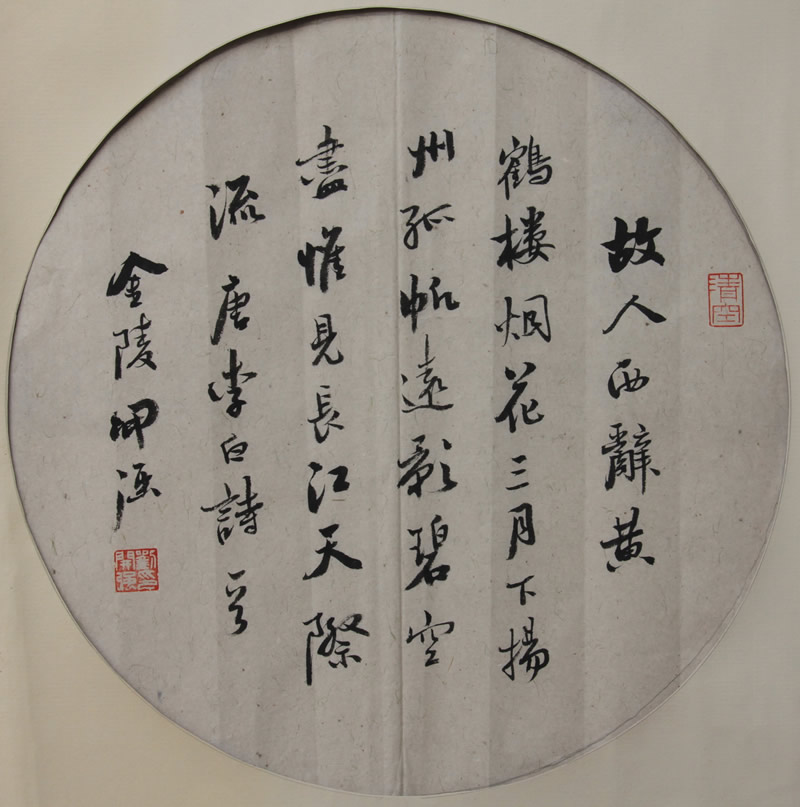 清空
故人西辭黄
鶴樓烟花三月下揚
州孤帆遠影碧空
盡惟見長江天際
流 唐李白詩一首
金陵